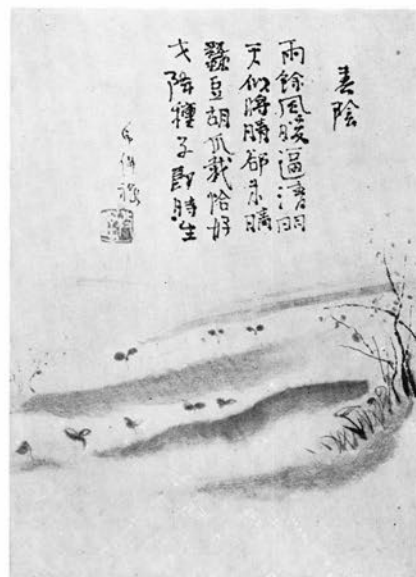 春陰
雨餘風暖逼清明
天似將晴卻未晴
蠶豆胡瓜栽恰好
才降種子即時生